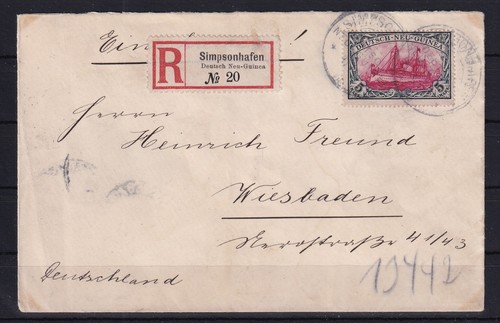 Einschreiben!
R
Simpsonhafen
Deutsch Neu-Guinea
№ 20
SIMPSO
DEUTSCH-NEU-GUINEA
5 5
Herrn
Heinrich Freund
Wiesbaden
Nerostraße 41/43
Deutschland
19442